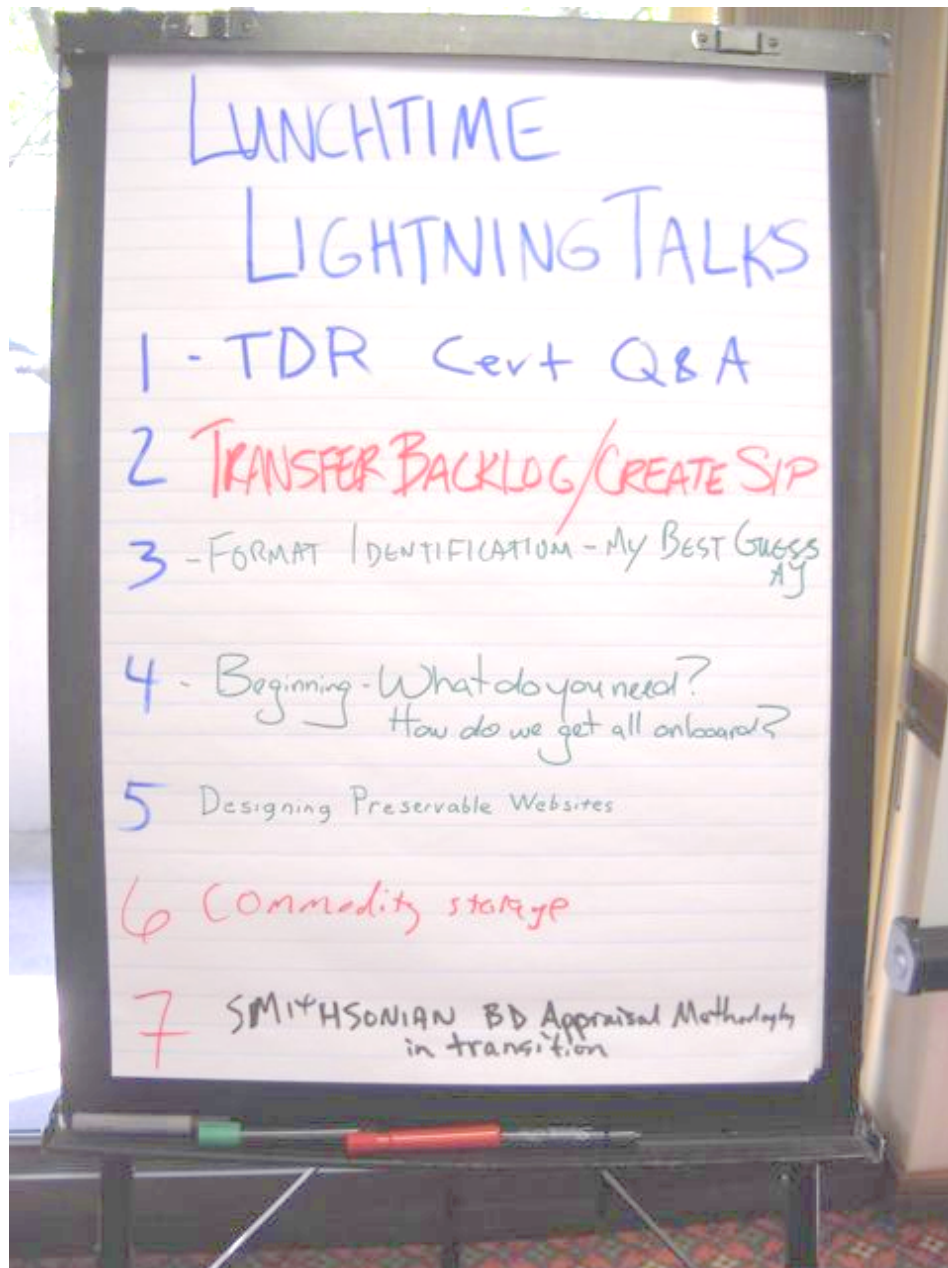 LUNCHTIME
LIGHTNING TALKS
1 - TDR Cert Q&A
2 TRANSFER BACKLOG/CREATE SIP
3 - FORMAT IDENTIFICATION - MY BEST GUESS
AJ
4 - Beginning - What do you need?
How do we get all onboard?
5 Designing Preservable Websites
6 Commodity storage
7 SMITHSONIAN BD Appraisal Methodology
in transition